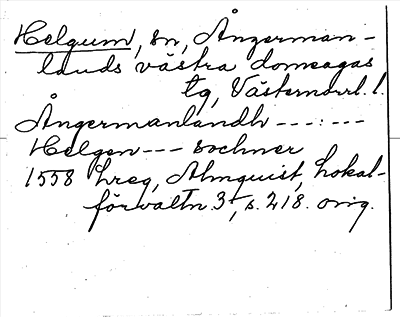 Helgum, sn, Ångerman-
lands västra domsagas
tg, Västernorrl. l.
Ångermanlandh ---:---
Helgen --- sochner
1558 hreg, Almquist, Lokal-
förvaltn. 3, s. 218. orig.